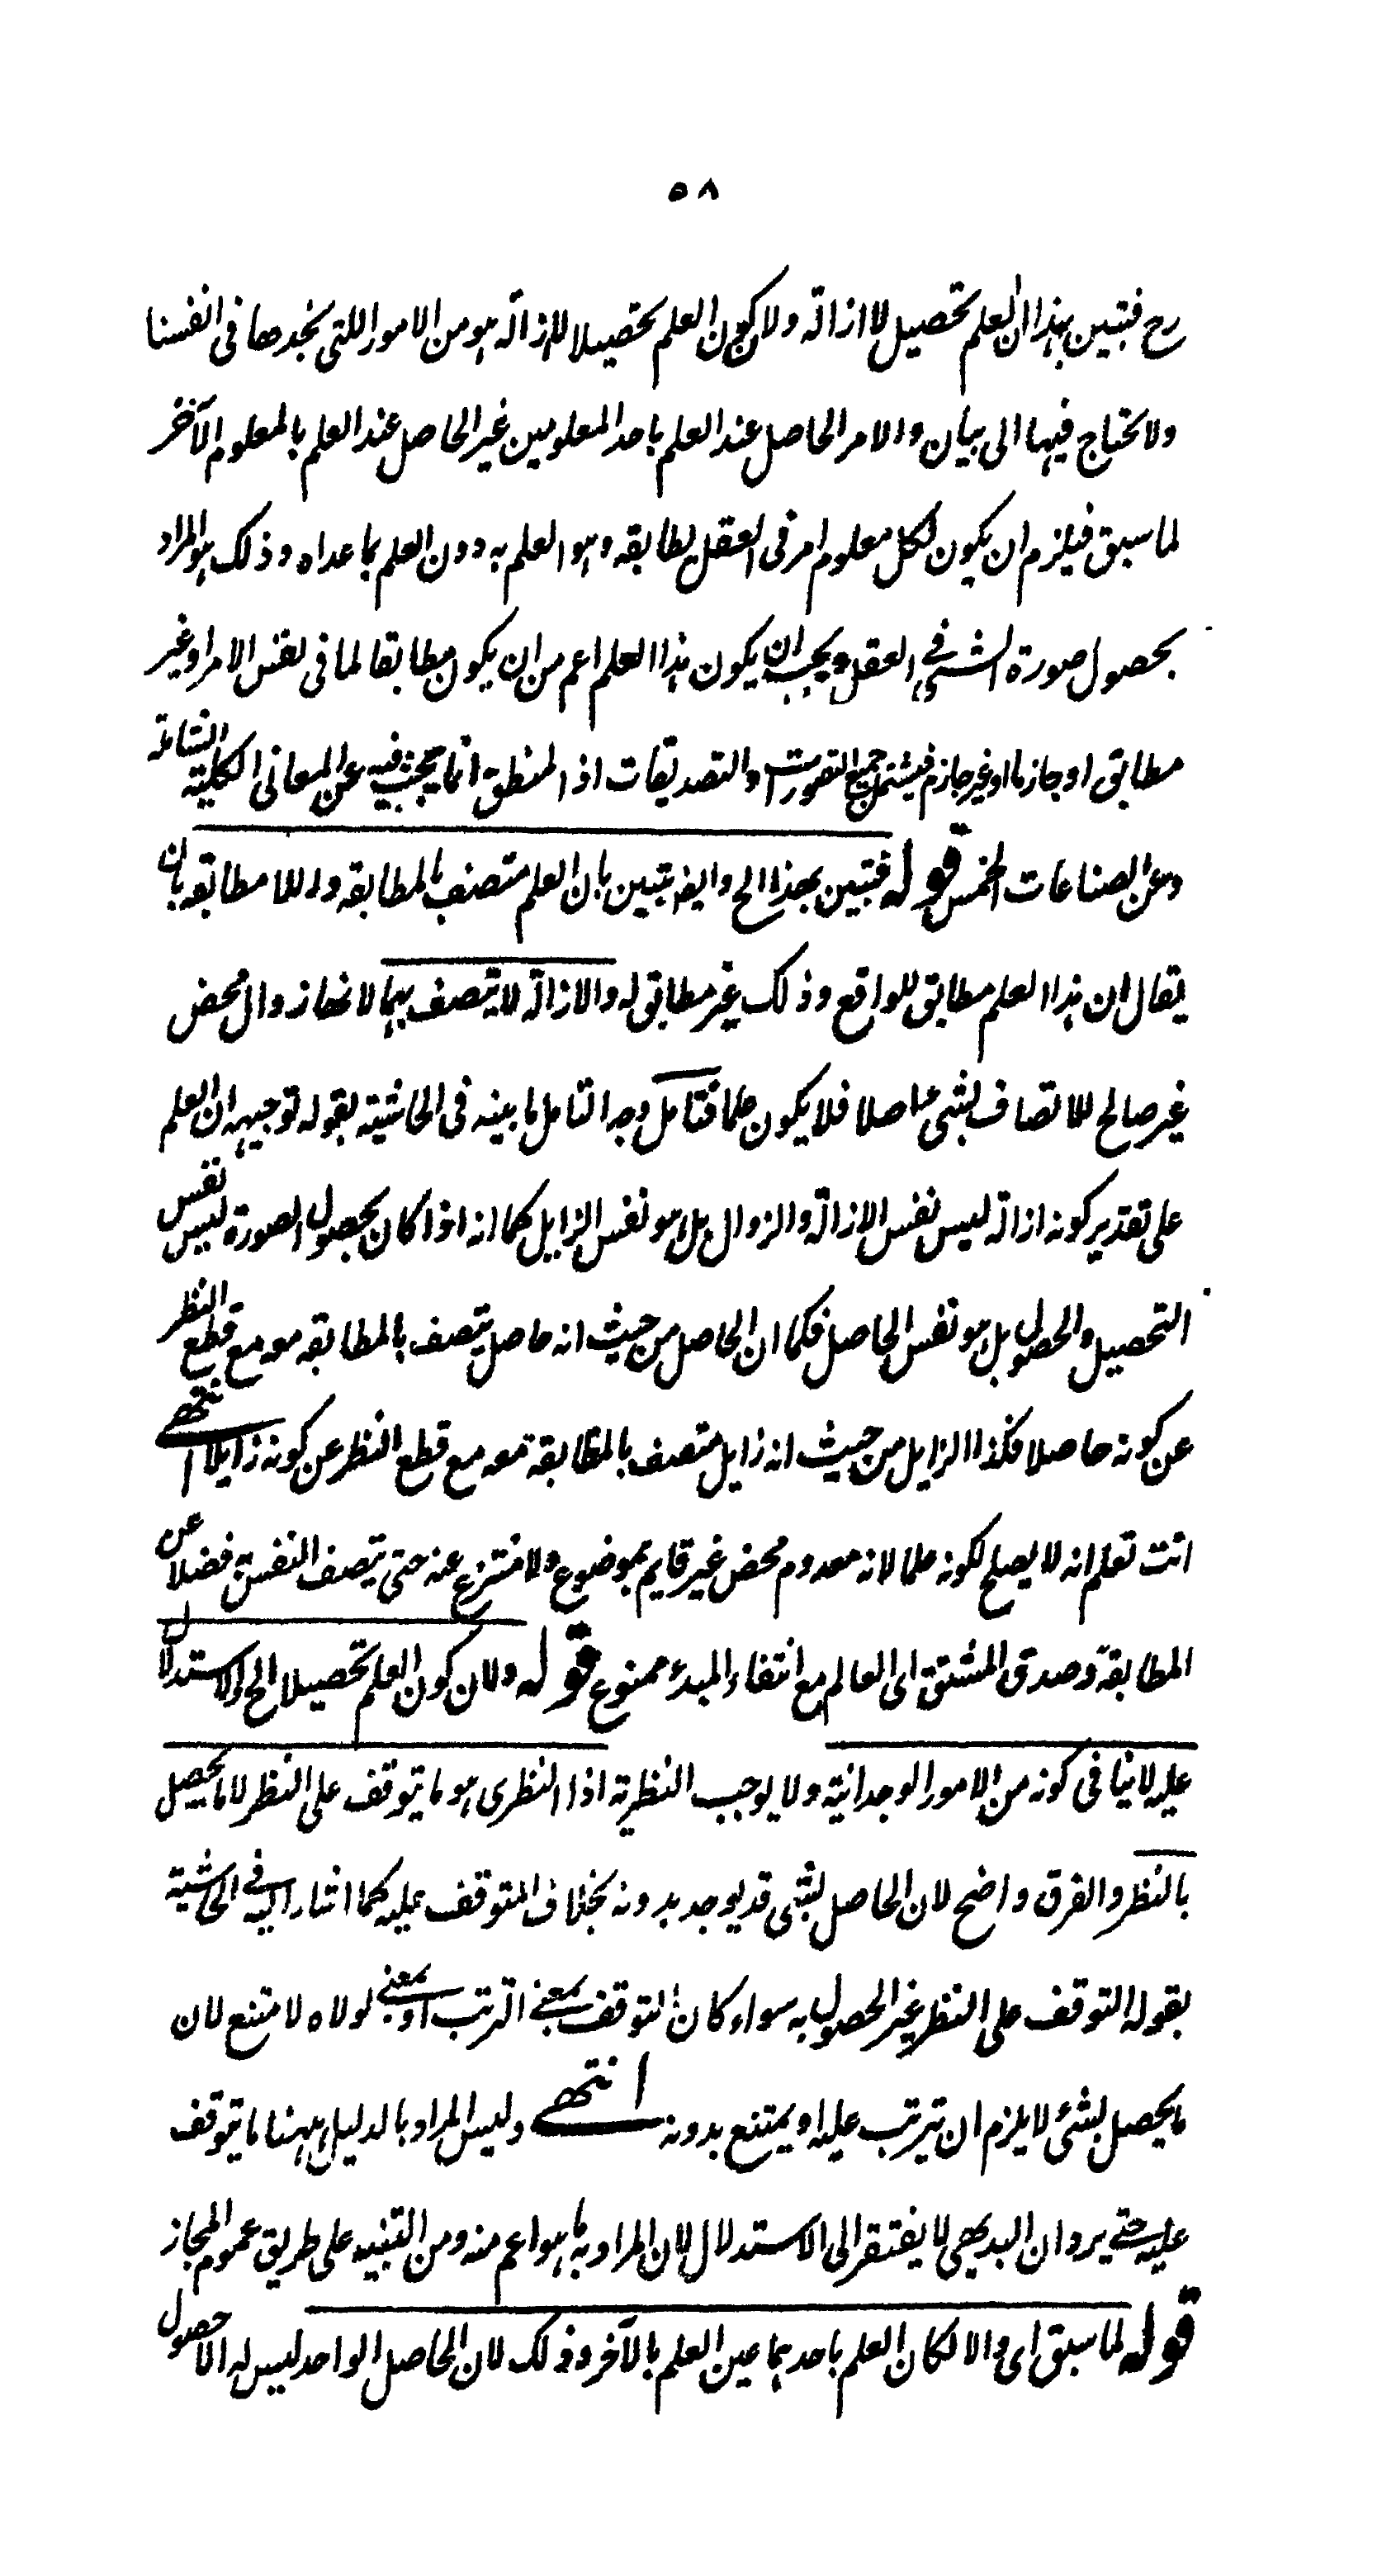 ٥٨
رح فتبين بهذا ان العلم تحصيل لا ازالة ولان كون العلم تحصيلا لا ازالة هو من الامور اللتى نجدها فى انفسنا
ولا نحتاج فيها الى بيان والامر الحاصل عند العلم باحد المعلومين غير الحاصل عند العلم بالمعلوم الآخر
لما سبق فيلزم ان يكون لكل معلوم امر فى العقل يطابقه وهو العلم به دون العلم بما عداه وذلك هو المراد
بحصول صورة الشىء فى العقل ويجب ان يكون هذا العلم اعم من ان يكون مطابقا لما فى نفس الامر او غير
مطابق او جازما او غير جازم فيشتمل جميع التصورات والتصديقات اذ المنطق انما يبحث فيه عن المعانى الكلية الشاملة
وعن الصناعات الخمس قوله فتبين بهذا الخ وايضا تبين بان العلم متصف بالمطابقه واللا مطابقه بان
يقال ان هذا العلم مطابق للواقع وذلك غير مطابق له والازالة لا يتصف بهما لانها زوال محض
غير صالح للاتصاف بشى ما اصلا فلا يكون علما فتامل وجه التامل ما بينه فى الحاشية بقوله توجيهه ان العلم
على تقدير كونه ازالة ليس نفس الازالة والزوال بل هو نفس الزايل كما انه اذا كان بحصول الصورة ليس نفس
التحصيل والحصول بل هو نفس الحاصل فكما ان الحاصل من حيث انه حاصل يتصف بالمطابقه معه مع قطع النظر
عن كونه حاصلا فكذا الزايل من حيث انه زايل متصف بالمطابقة معه مع قطع النظر عن كونه زايلا انتهى
انت تعلم انه لا يصلح لكونه علما لانه معدوم محض غير قايم بموضوع ولا منتزع عنه حتى يتصف النفس فضلا عن
المطابقة وصدق المشتق اى العالم مع انتفاء المبدء ممنوع قوله ولان كون العلم تحصيلا الخ والاستدلال
عليه لا ينافى كونه من الامور الوجدانية ولا يوجب النظرية اذ النظرى هو ما يتوقف على النظر لا ما يحصل
بالنظر والفرق واضح لان الحاصل بشى قد يوجد بدونه بخلاف المتوقف عليه كما اشار اليه فى الحاشية
بقوله التوقف على النظر غير الحصول به سواء كان التوقف بمعنى الترتب او بمعنى لولاه لامتنع لان
ما يحصل بشئ لا يلزم ان يترتب عليه او يمتنع بدونه انتهى وليس المراد بالدليل ههنا ما يتوقف
عليه حتى يرد ان البديهى لا يفتقر الى الاستدلال لان المراد به ما هو اعم منه ومن التنبيه على طريق عموم المجاز
قوله لما سبق اى والا لكان العلم باحدهما عين العلم بالآخر وذلك لان الحاصل الواحد ليس له الا حصول